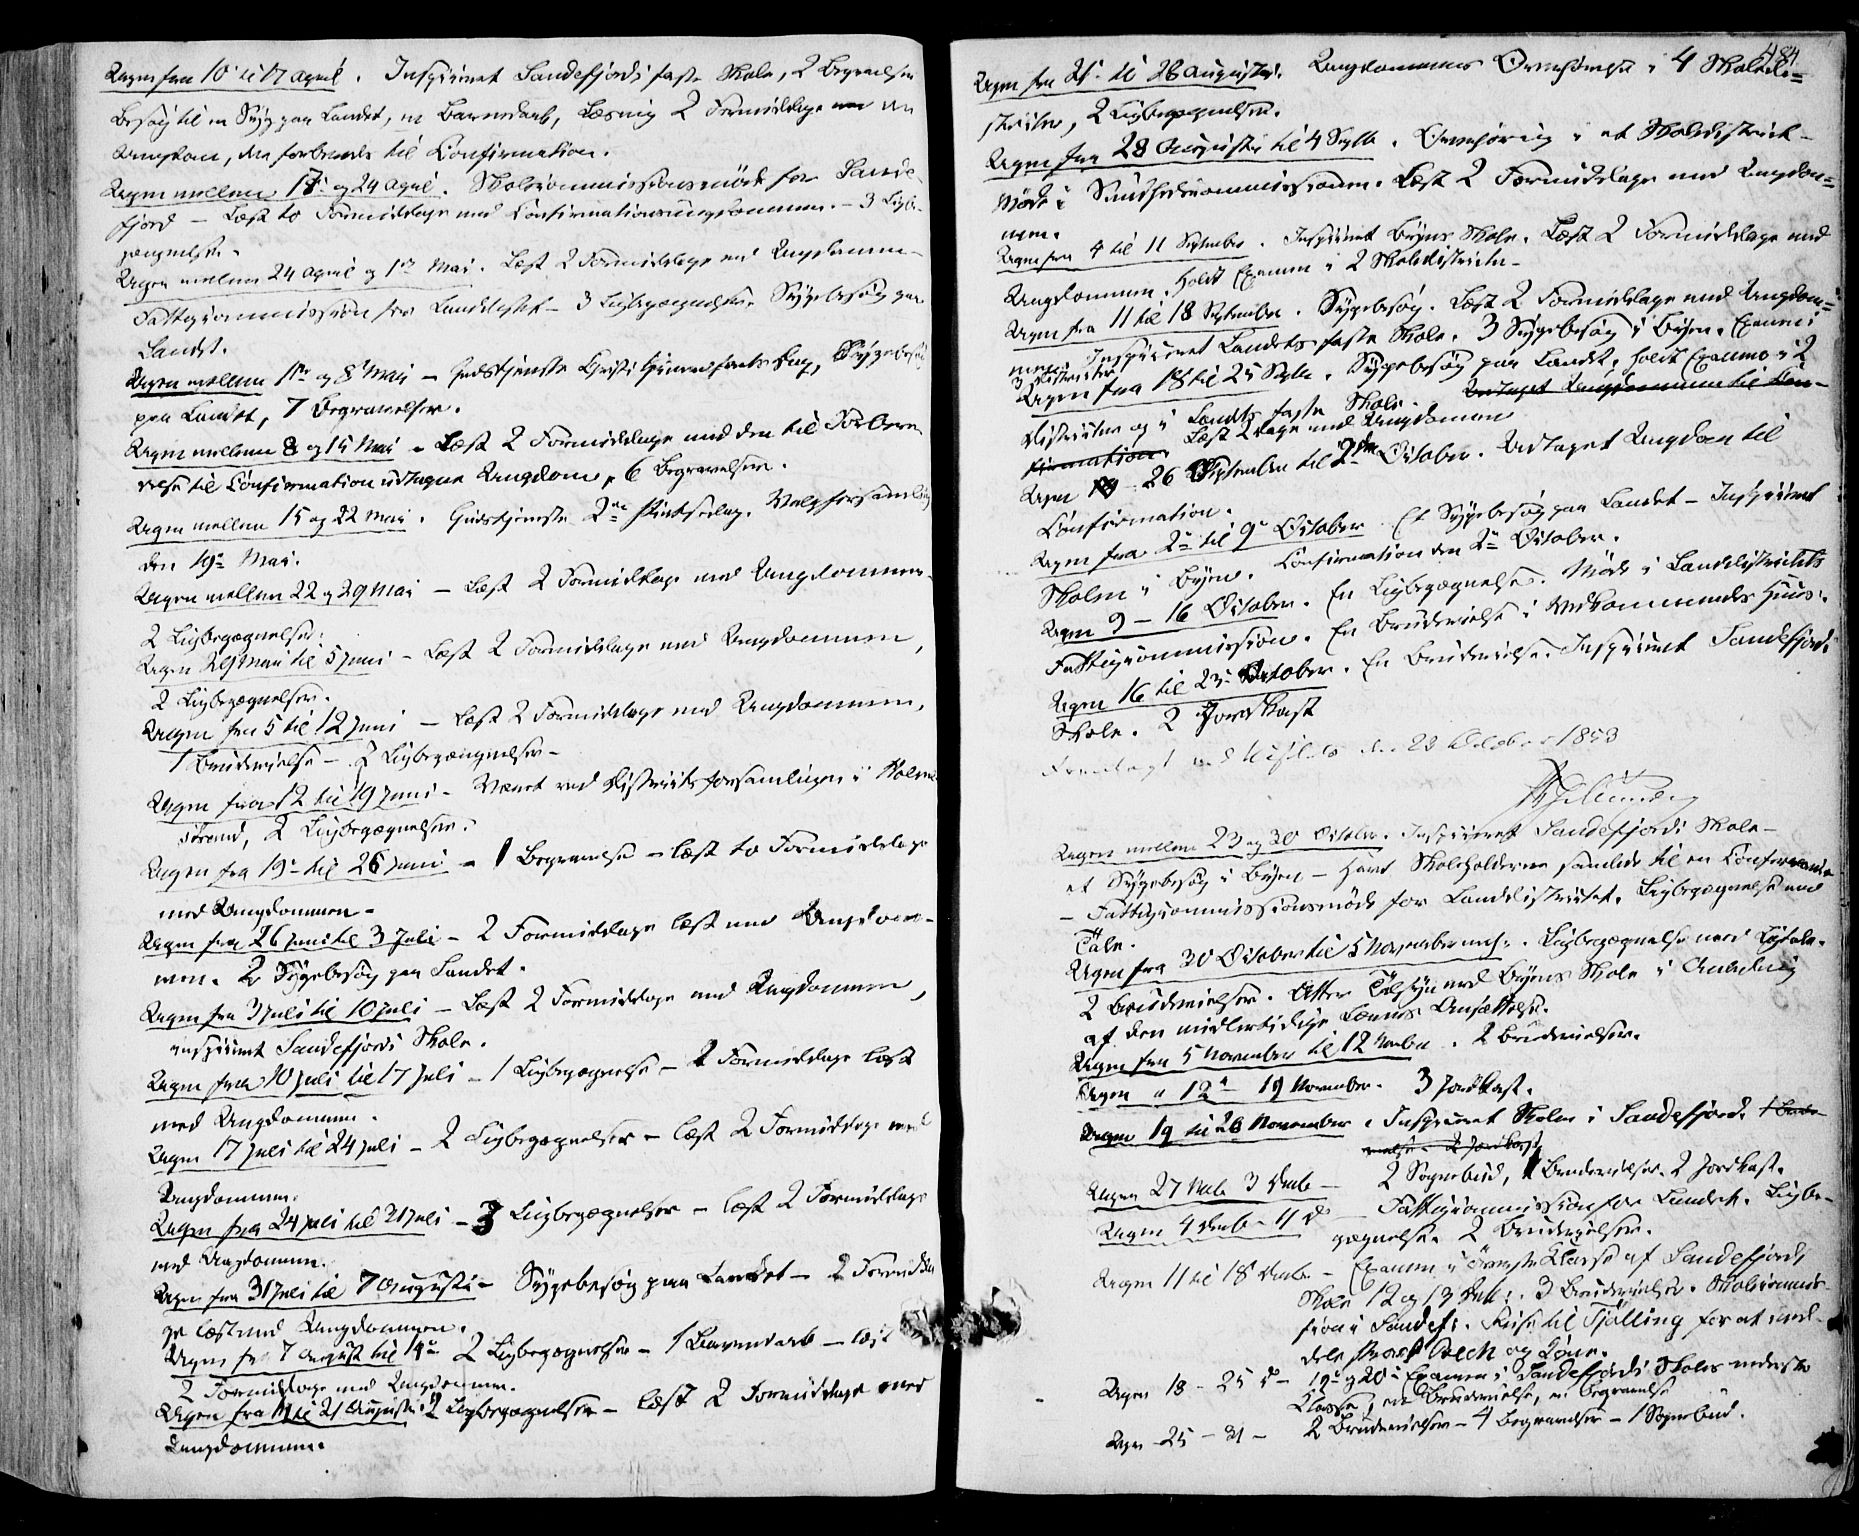 Ugen fra 10 til 17 April. Inspiceret Sandefjords faste Skole, 2 Begravelser
Besøg til en Syg paa Landet, en Barnedaab, Læsning 2 Formiddage med den
Ungdom, der forberedes til Confirmation.
Ugen mellem 17 og 24 April. Skolecommissionsmøde for Sande-
fjord – Læst to Formiddage med Confirmationsungdommen. – 3 Ligbe-
gængelser.
Ugen mellem 24 April og 1ste Mai. Læst 2 Formiddage med Ungdommen –
Fattigcommission for Landdistrict – 3 Ligbegængelser. Sygebesøg paa
Landet.
Ugen mellem 1ste og 8 Mai – Gudstjeneste Christi Himmelfarts Dag, Sygebesøg
paa Landet, 7 Begravelser.
Ugen mellem 8 og 15 Mai – Læst 2 Formiddage med den til Forbere-
relse til Confirmation udtagne Ungdom, 6 Begravelser.
Ugen mellem 15 og 22 Mai. Gudstjeneste 2den Pintsedag. Valgforsamling
den 19de Mai.
Ugen mellem 22 og 29 Mai – Læst 2 Formiddage med Ungdommen.
2 Ligbegængelser.
Ugen 29 Mai til 5 Juni – Læst 2 Formiddage med Ungdommen,
2 Ligbegængelser.
Ugen fra 5 til 12 Juni – Læst 2 Formiddage med Ungdommen,
1 Brudevielse – 2 Ligbegængelser –
Ugen fra 12 til 19 Juni – Været ved Districtsforsamlingen i Holme-
strand, 2 Ligbegængelser.
Ugen fra 19 til 26 Juni – 1 Begravelse – læst to Formiddage
med Ungdommen –
Ugen fra 26 Juni til 3 Juli – 2 Formiddage læst med Ungdom-
men. 2 Sygebesøg paa Landet.
Ugen fra 3 Juli til 10 Juli – Læst 2 Formiddage med Ungdommen,
inspiceret Sandefjords Skole.
Ugen fra 10 Juli til 17 Juli – 1 Ligbegængelse – 2 Formiddage læst
med Ungdommen.
Ugen 17 Juli til 24 Juli – 2 Ligbegængelser – læst 2 Formiddage med
Ungdommen.
Ugen fra 24 Juli til 31 Juli – 3 Ligbegængelser – læst 2 Formiddage
med Ungdommen.
Ugen fra 31 Juli til 7 August – Sygebesøg paa Landet – 2 Formidda-
ge læst med Ungdommen.
Ugen fra 7 August til 14 2 Ligbegængelser – 1 Barnedaab – læst
2 Formiddage med Ungdommen.
Ugen fra 14 til 21 August. 2 Ligbegængelser – læst 2 Formiddage med
Ungdommen.
484
Ugen fra 21 til 28 August. Ungdommens Overhørelse i 4 Skoledi-
stricter, 2 Ligbegængelser.
Ugen fra 28 August til 4 Septb. Overhøring i et Skoledistrict –
Møde i Sundhedscommissionen. Læst 2 Formiddage med Ungdom-
men.
Ugen fra 4 til 11 September. Inspiceret Byens Skole. Læst 2 Formiddage med
Ungdommen. Holdt Examen i 2 Skoledistricter –
Ugen fra 11 til 18 September. Sygebesøg. Læst 2 Formiddage med Ungdom-
men. Inspiceret Landets faste Skole. 3 Sygebesøg i Byen. Examen i
3 Districter
Ugen fra 18 til 25 Septb. Sygebesøg paa Landet, holdt Examen i 2
Districter og i Landets faste Skole. Udtaget Ungdommen til Con-
firmation. Læst 2 Dage med Ungdommen
Ugen 26 September til 2den October. Udtaget Ungdom til
Confirmation.
Ugen fra 2 til 9 October. Et Sygebesøg paa Landet – Inspiceret
Skolen i Byen. Confirmation den 2 October.
Ugen 9 – 16 October. En Ligbegængelse. Møde i Landdistrictets
Fattigcommission. En Brudevielse i Vedkommendes Huus.
Ugen 16 til 23 October. En Brudevielse. Inspiceret Sandefjords
Skole. 2 Jordkast
Fremlagt ved den 23 October 1853
Ugen mellem 23 og 30 October. Inspiceret Sandefjords Skole –
et Sygebesøg i Byen – Havt Skoleholderne samlede til en Conference
– Fattigcommissionsmøde for Landdistrictet. Ligbegængelse med
Tale.
Ugen fra 30 October til 5 November . Ligbegængelse med Ligtale.
2 Brudevielser. Atter Tilsyn med Byens Skole i Anledning
af den midlertidige Lærers Ansættelse.
Ugen fra 5 November til 12 Novbr. 2 Brudevielser.
Ugen 12 – 19 November. 3 Jordkast.
Ugen 19 til 26 November. Inspiceret Skolen i Sandefjord. 1 Brude-
vielse. 2 Jordkast
Ugen 27 Novb. 3 Decb – 2 Sognebud, 1 Brudevielser. 2 Jordkast.
Ugen 4 Decb – 11 D – Fattigcommission for Landet. Ligbe-
gængelse. 2 Brudevielser.
Ugen 11 til 18 Decbr – Examen i øverste Classe af Sandefjords
Skole 12 og 13 Decb. 3 Brudevielser. Skolecommis-
sion i Sandef. Reise til Tjølling for at med-
dele og Kone.
Ugen 18 – 25 D – 19 og 20 Examen i Sandefjords Skoles nederste
Classe, en Brudevielse, en Begravelse
Ugen 25 – 31 – 2 Brudevielser – 4 Begravelser – 1 Sognebud.